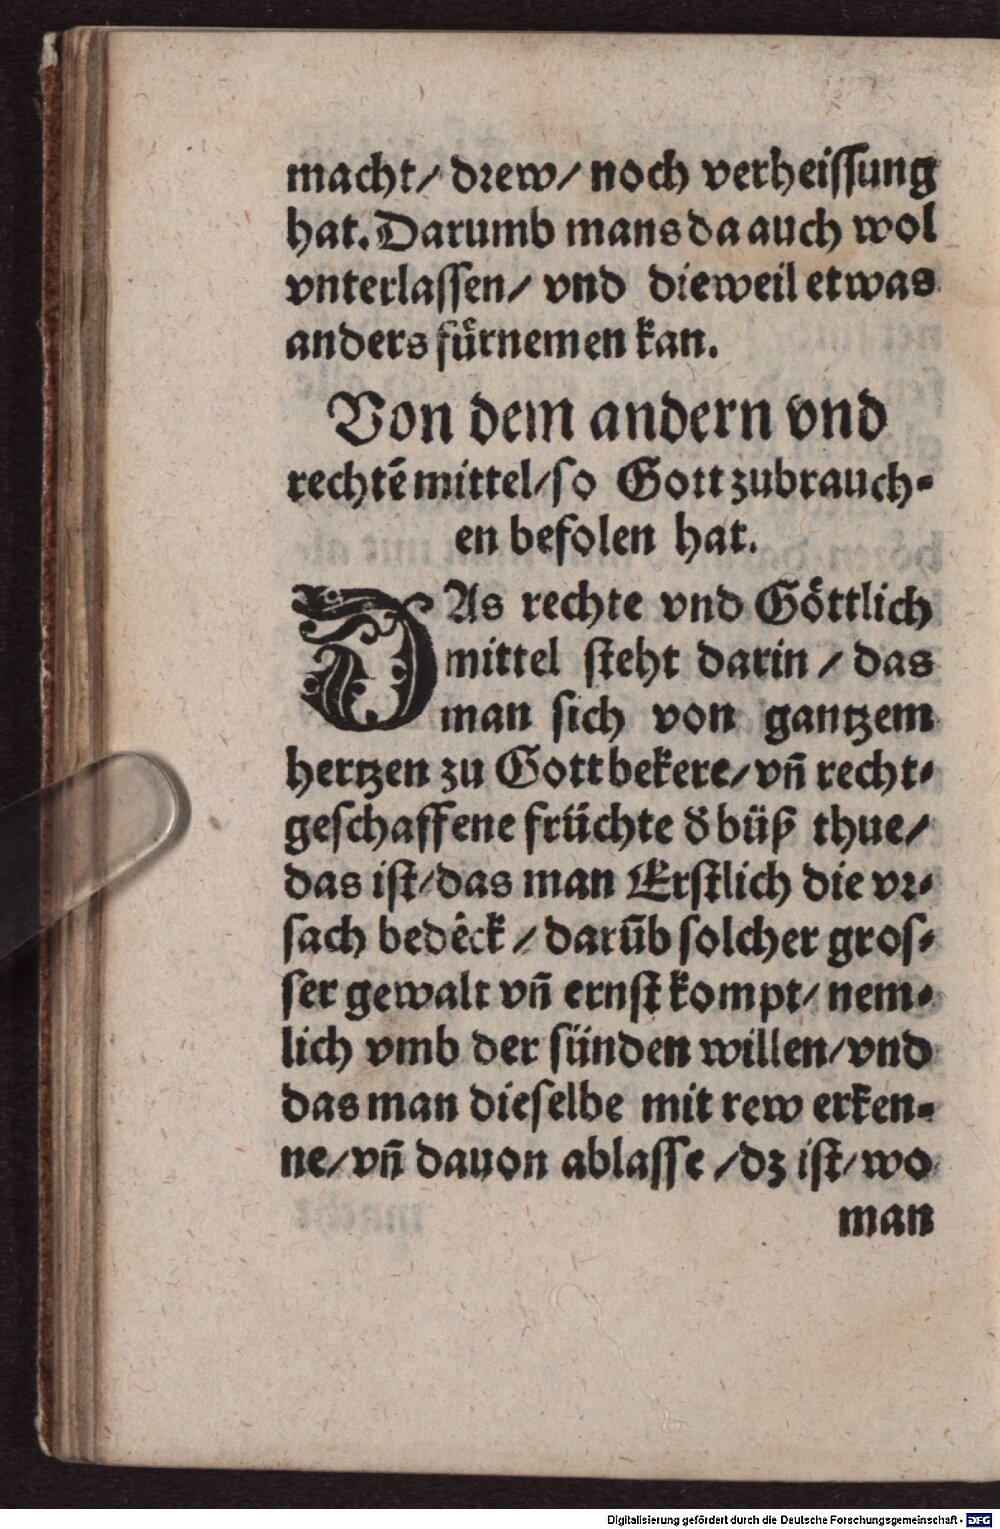 macht/ drew/ noch verheiſſung
hat. Darumb mans da auch wol
vnterlaſſen/ vnd dieweil etwas
anders fuͤrnemen kan.
Von dem andern vnd
rechtē mittel/ſo Gott zubrauch⸗
en befolen hat.
DAs rechte vnd Goͤttlich
mittel ſteht darin / das
man ſich von gantzem
hertzen zu Gott bekere/vñ recht⸗
geſchaffene früchte ð büß thue/
das iſt/das man Erſtlich die vr⸗
ſach bedēck / darūb ſolcher groſ⸗
ſer gewalt vñ ernſt kompt/ nem⸗
lich vmb der ſünden willen/vnd
das man dieſelbe mit rew erken⸗
ne/vñ dauon ablaſſe /dz iſt/wo
man
Digitalisierung gefördert durch die Deutsche Forschungsgemeinschaft - DFG